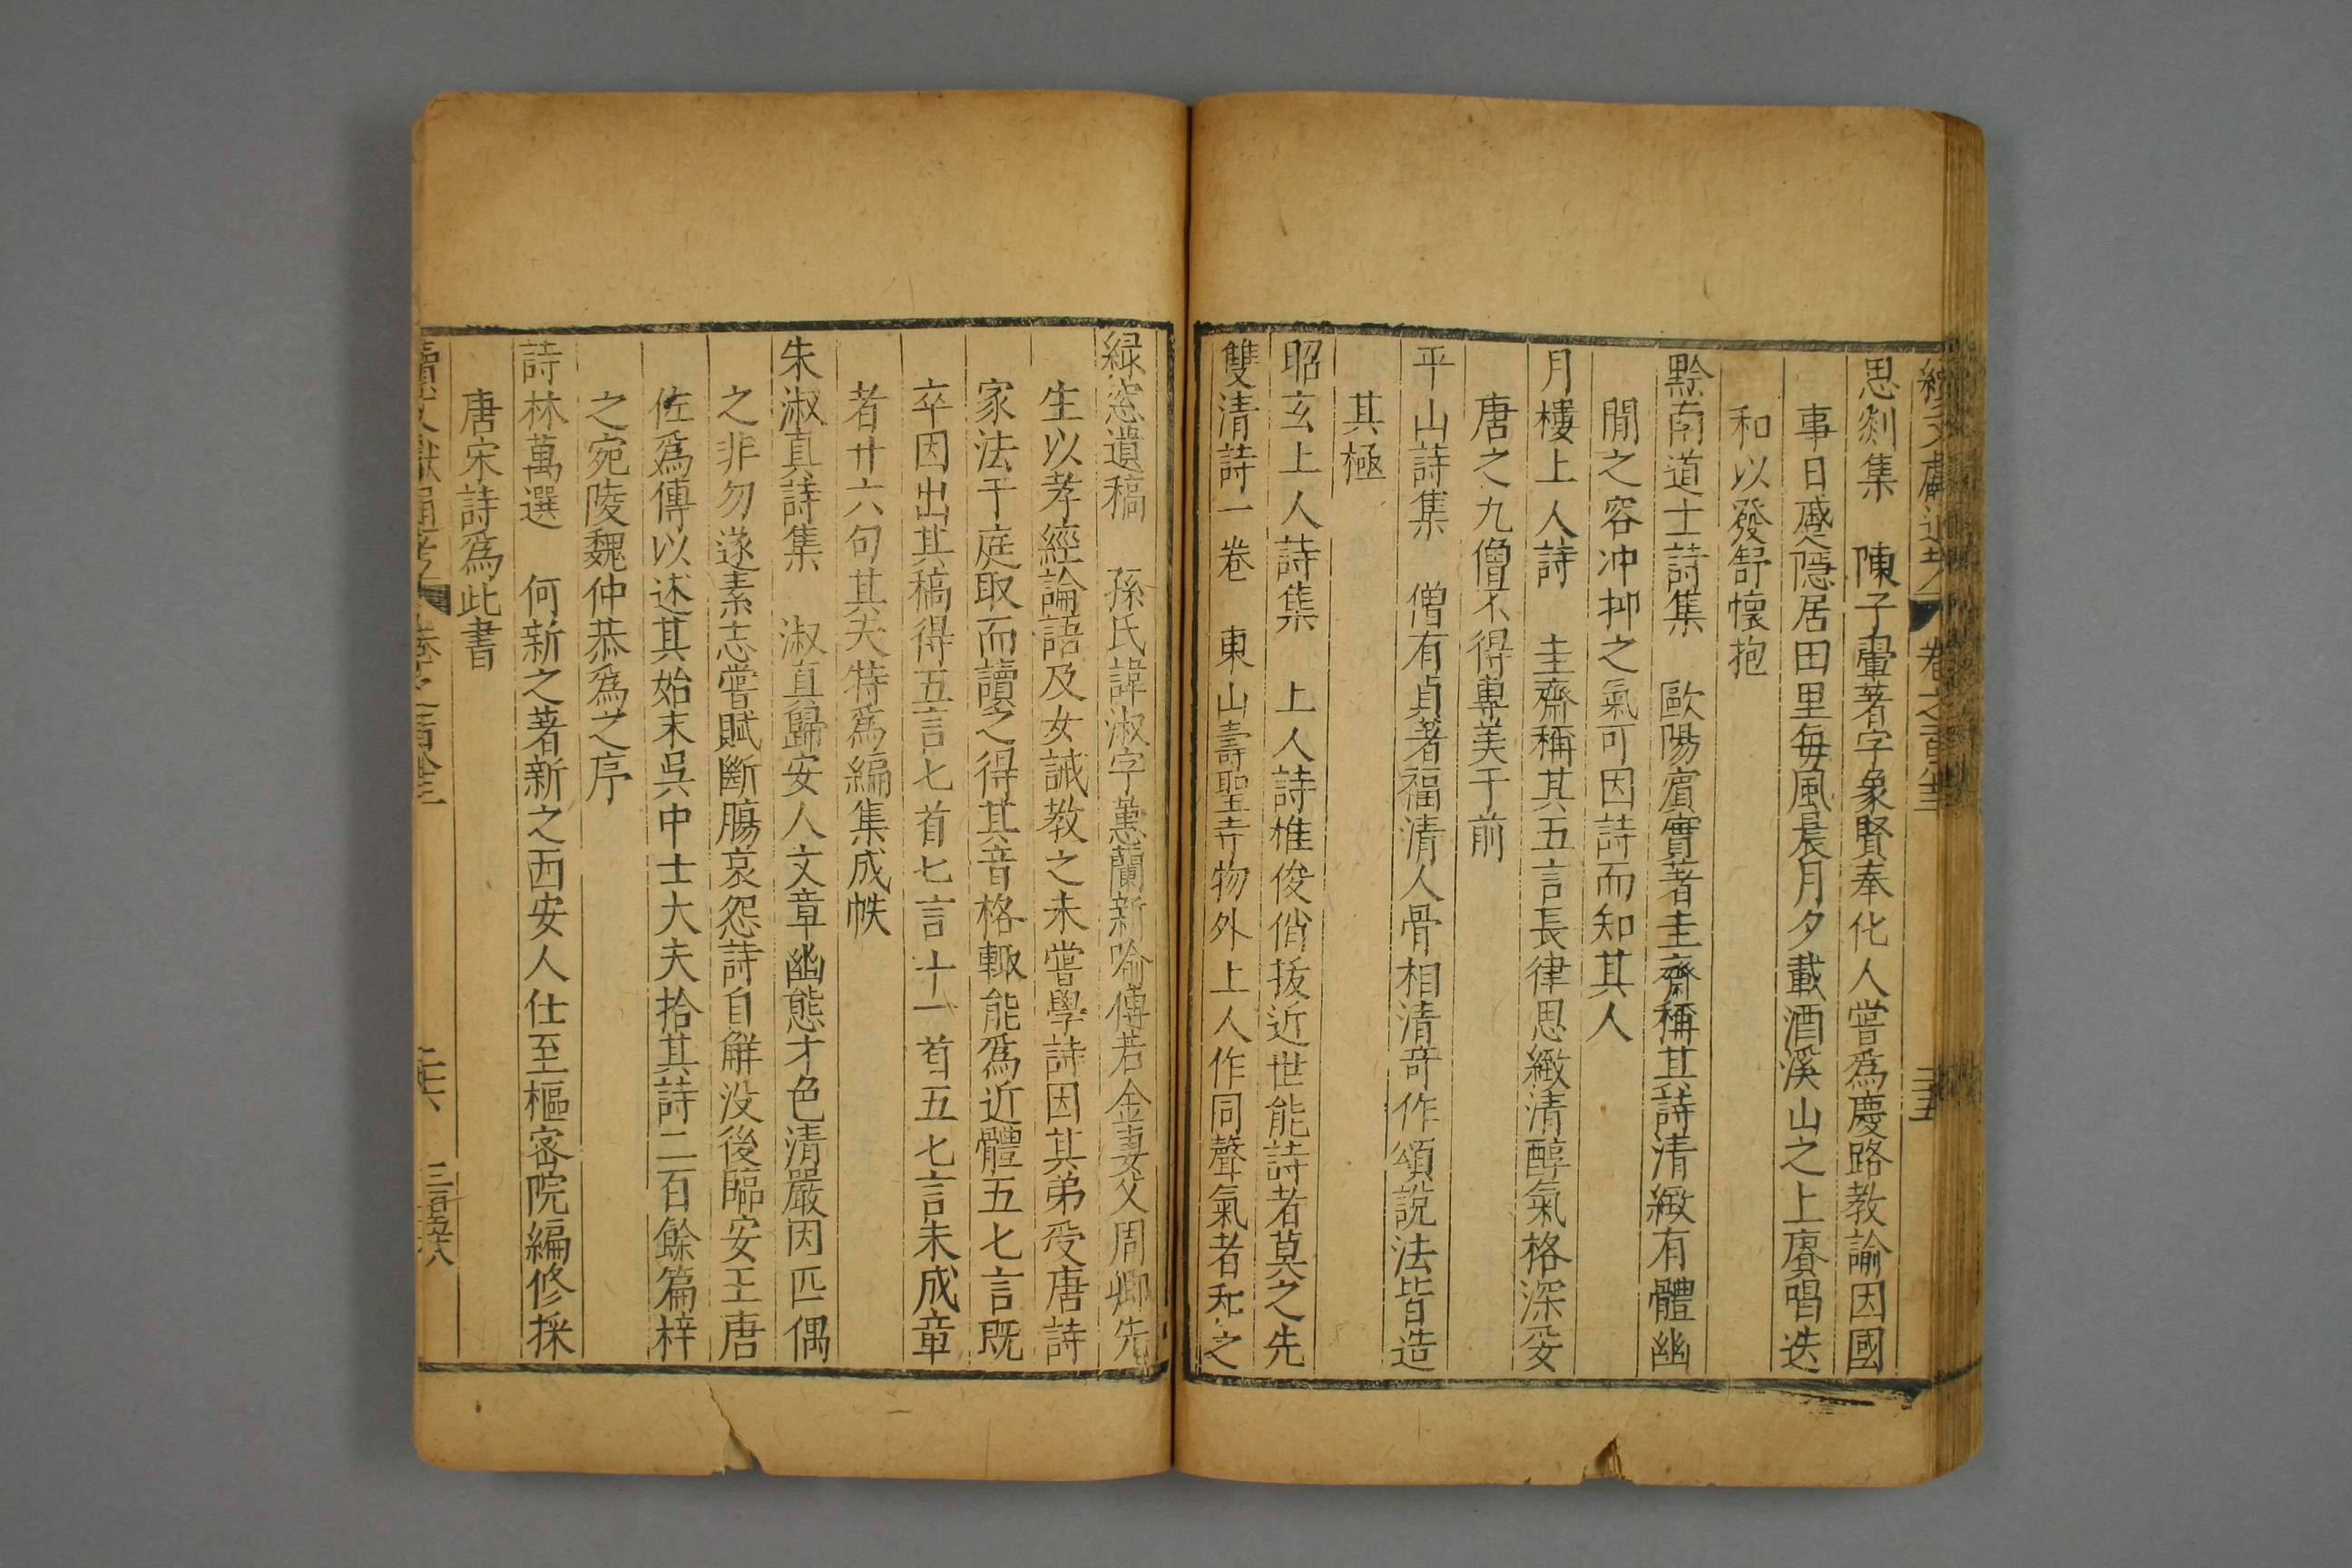 續文獻通考 卷之一百八十三 三十五
思剡集 陳子翬著字象賢奉化人嘗爲慶路教諭因國
事日蹙隱居田里每風晨月夕載酒溪山之上賡唱迭
和以發舒懷抱
黔南道士詩集 歐陽賓實著圭齋稱其詩清緻有體幽
閒之容冲抑之氣可因詩而知其人
月樓上人詩 圭齋稱其五言長律思緻清醇氣格深妥
唐之九僧不得專美于前
平山詩集 僧有貞著福清人骨相清奇作頌説法皆造
其極
昭玄上人詩集 上人詩惟俊俏拔近世能詩者莫之先
雙清詩一卷 東山壽聖寺物外上人作同聲氣者和之
緑窓遺稿 孫氏諱淑字蕙蘭新喻傅若金妻父周卿先
生以孝經論語及女誡教之未嘗學詩因其弟受唐詩
家法于庭取而讀之得其音格輙能爲近體五七言既
卒因出其稿得五言七首七言十一首五七言未成章
者廿六句其夫特爲編集成帙
朱淑真詩集 淑真歸安人文章幽態才色清嚴因匹偶
之非勿遂素志嘗賦斷膓哀怨詩自解没後臨安王唐
佐爲傳以述其始末呉中士大夫拾其詩二百餘篇梓
之宛陵魏仲恭爲之序
詩林萬選 何新之著新之西安人仕至樞密院編修採
唐宋詩爲此書
三百五十八